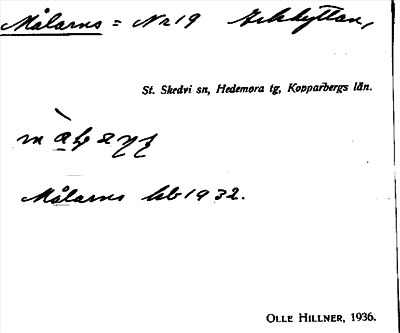 Målarns = Nr 19 Jälkhyttan,
St. Skedvi sn, Hedemora tg, Kopparbergs län.
Målarns lsb 1932.
OLLE HILLNER, 1936.